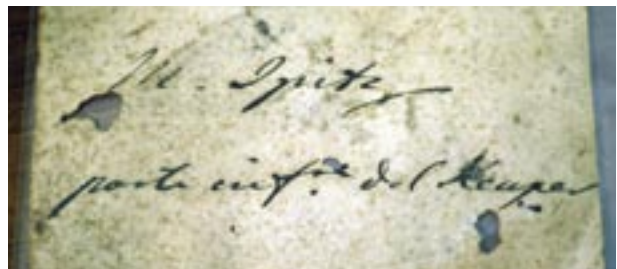 M. Spitz
parte inf.re del Keuper